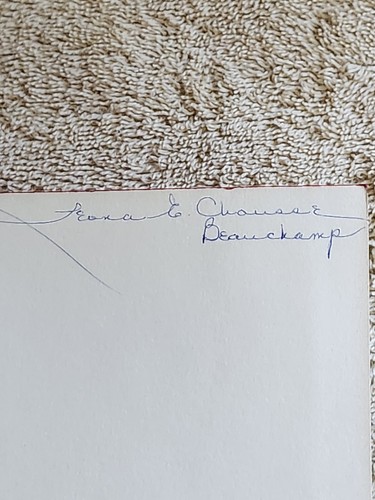 Leona E. Chousse
Beauchamp